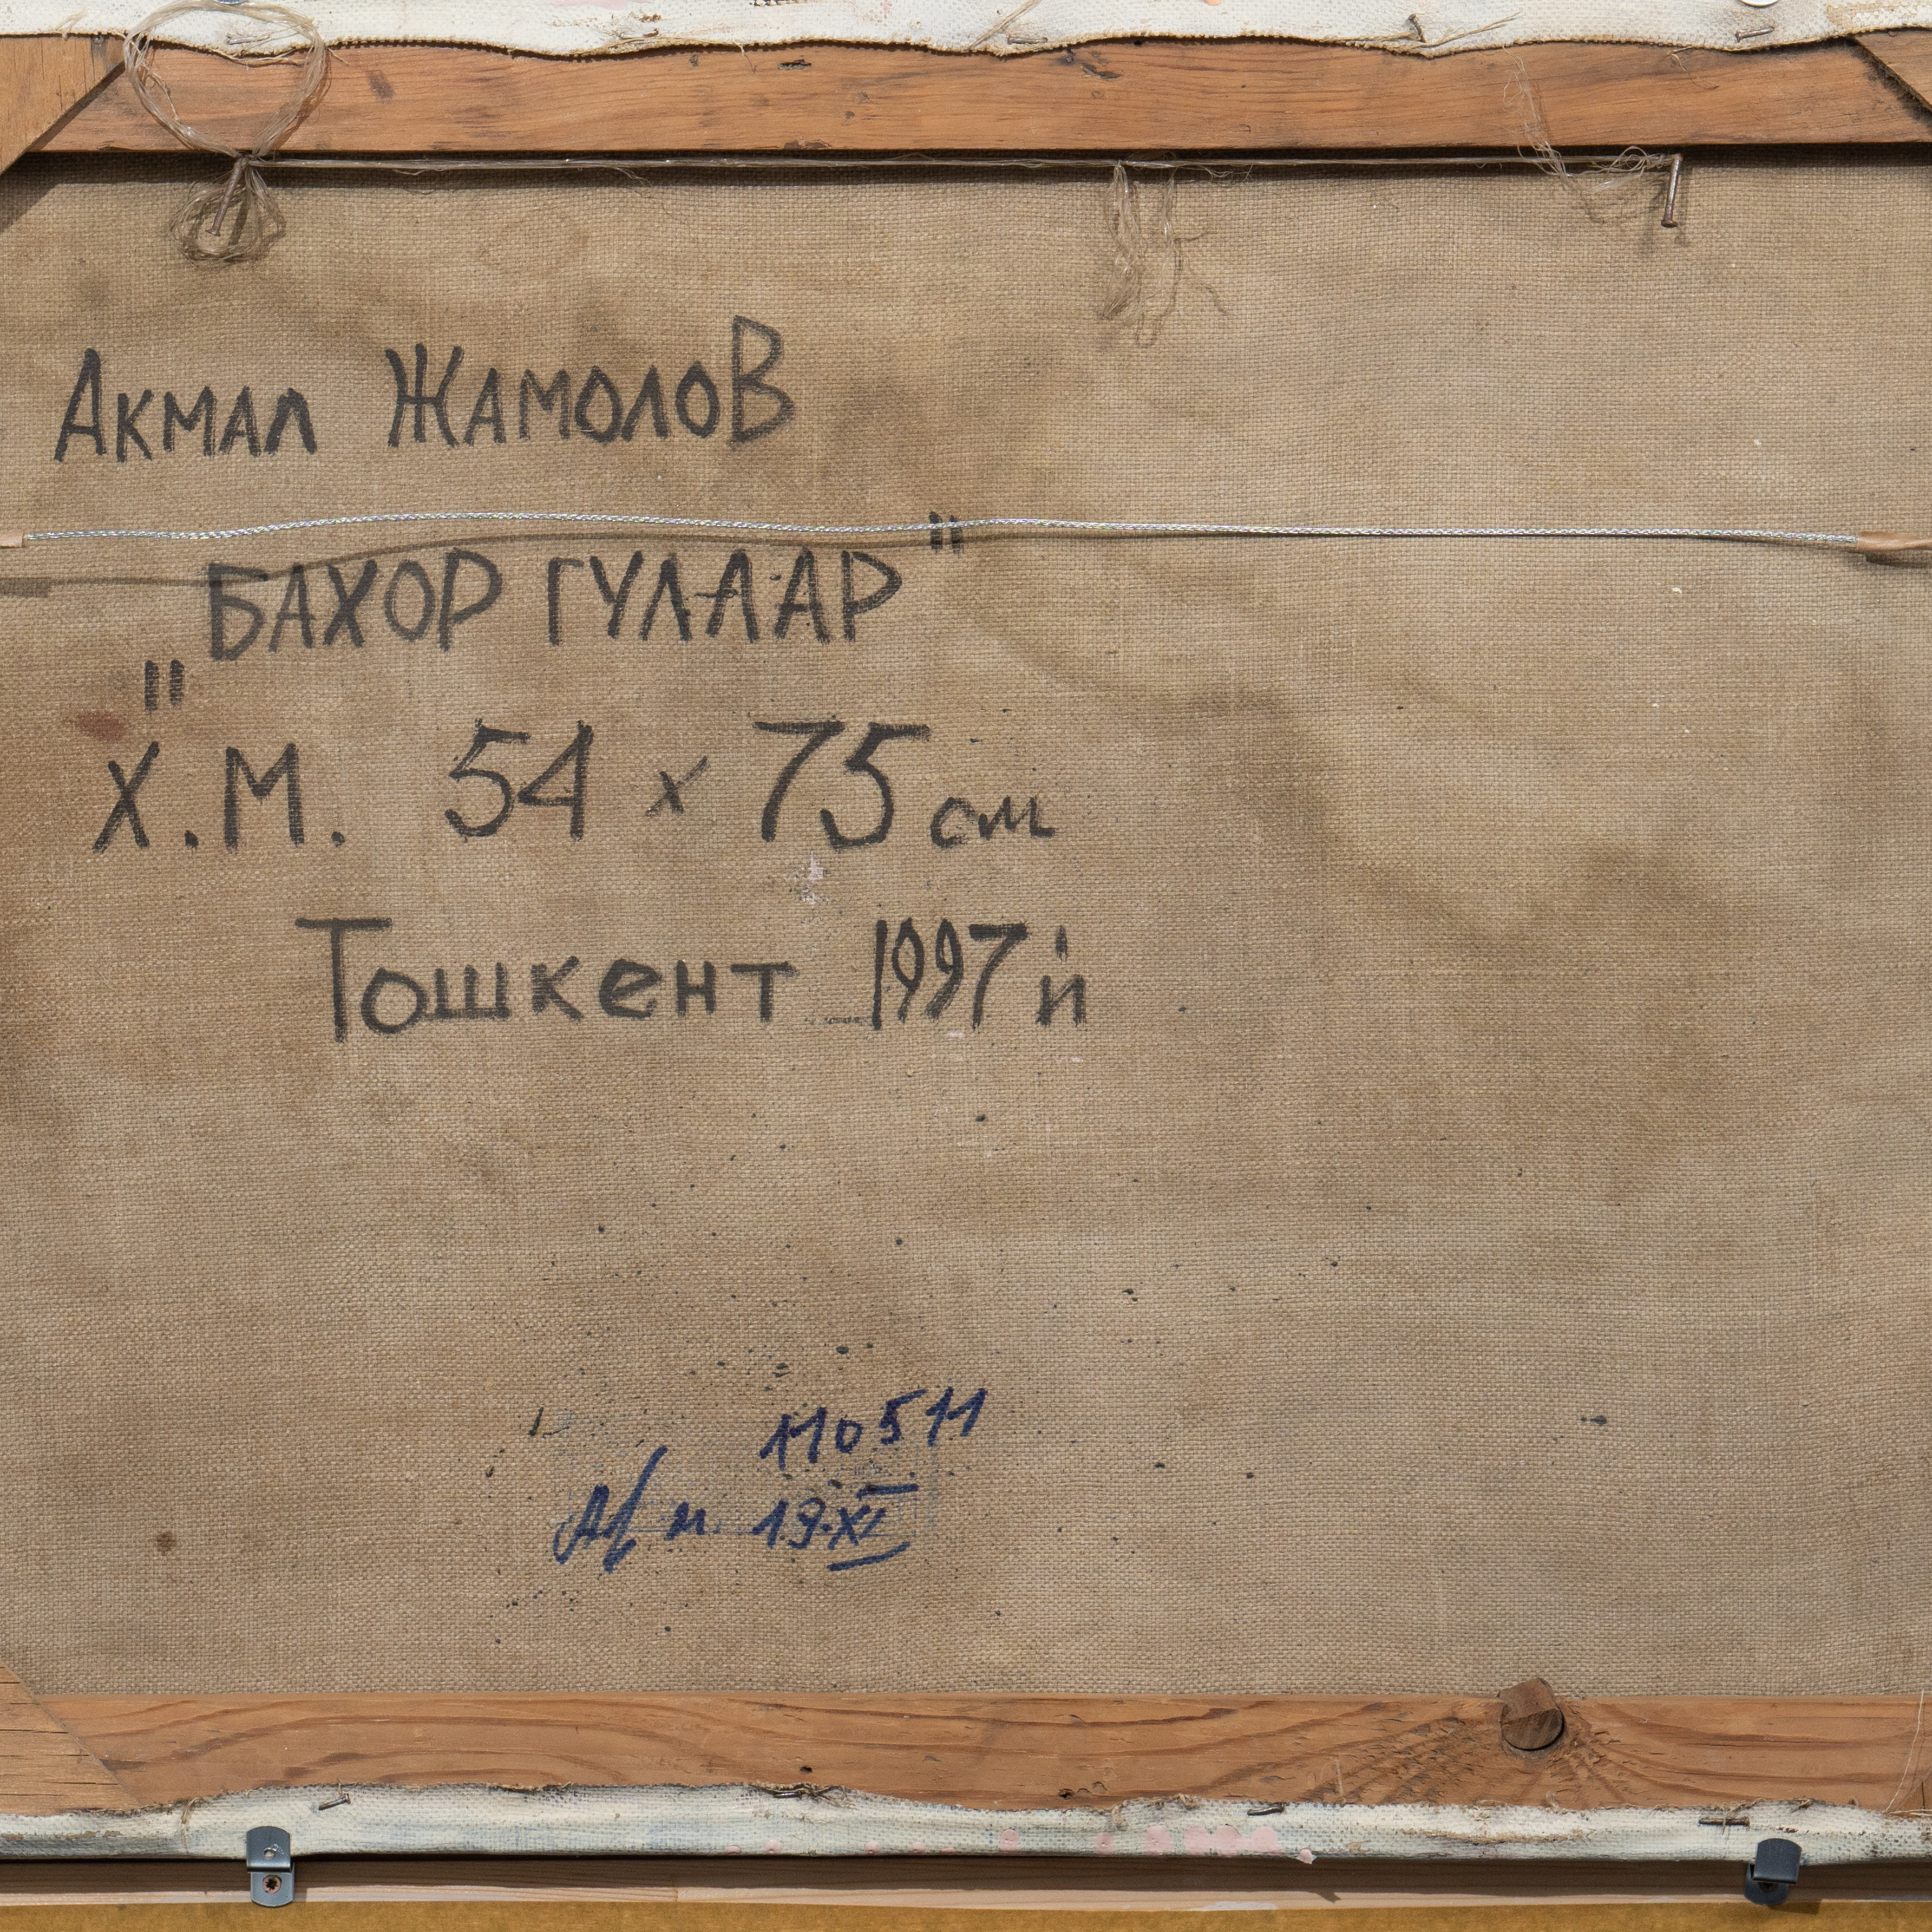 Акмал Жамолов
"БАХОР ГУЛЛАР"
Х.М. 54 x 75 см
Тошкент 1997 й
110511
19.XI